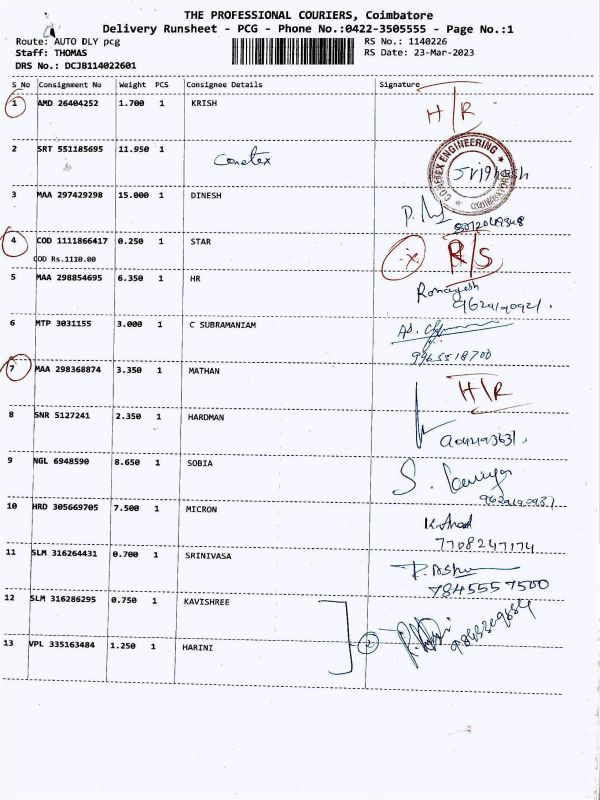 THE PROFESSIONAL COURIERS, Coimbatore
Delivery Runsheet - PCG - Phone No.:0422-3505555 - Page No.:1
Route: AUTO DLY pcg RS No.: 1140226
Staff: THOMAS RS Date: 23-Mar-2023
DRS No.: DCJB114022601
S No Consignment No Weight PCS Consignee Details Signature
1 AMD 26404252 1.700 1 KRISH H/R
2 SRT 551185695 11.950 1 Conetex
CONETEX ENGINEERING COIMBATORE
3 MAA 297429298 15.000 1 DINESH
4 COD 1111866417 0.250 1 STAR R/S
COD Rs.1110.00
5 MAA 298854695 6.350 1 HR
6 MTP 3031155 3.000 1 C SUBRAMANIAM
9965518700
7 MAA 298368874 3.350 1 MATHAN H/R
8 SNR 5127241 2.350 1 HARDMAN
9 NGL 6948590 8.650 1 SOBIA
10 HRD 305669705 7.500 1 MICRON
7708247174
11 SLM 316264431 0.700 1 SRINIVASA
7845557500
12 SLM 316286295 0.750 1 KAVISHREE
13 VPL 335163484 1.250 1 HARINI 2